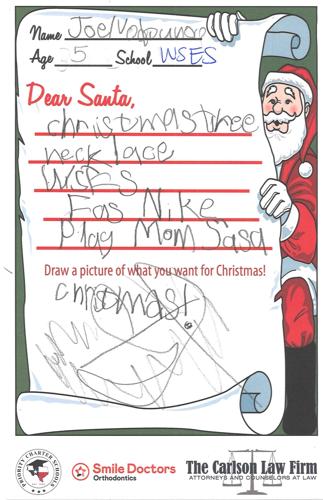 Name Joel
Age 5 School WSES
Dear Santa,
christmastree
necklace
WSES
Fos Nike
Play Mom Sasa
Draw a picture of what you want for Christmas!
christmast
PRIORITY CHARTER SCHOOLS
Smile Doctors
Orthodontics
The Carlson Law Firm
ATTORNEYS AND COUNSELORS AT LAW